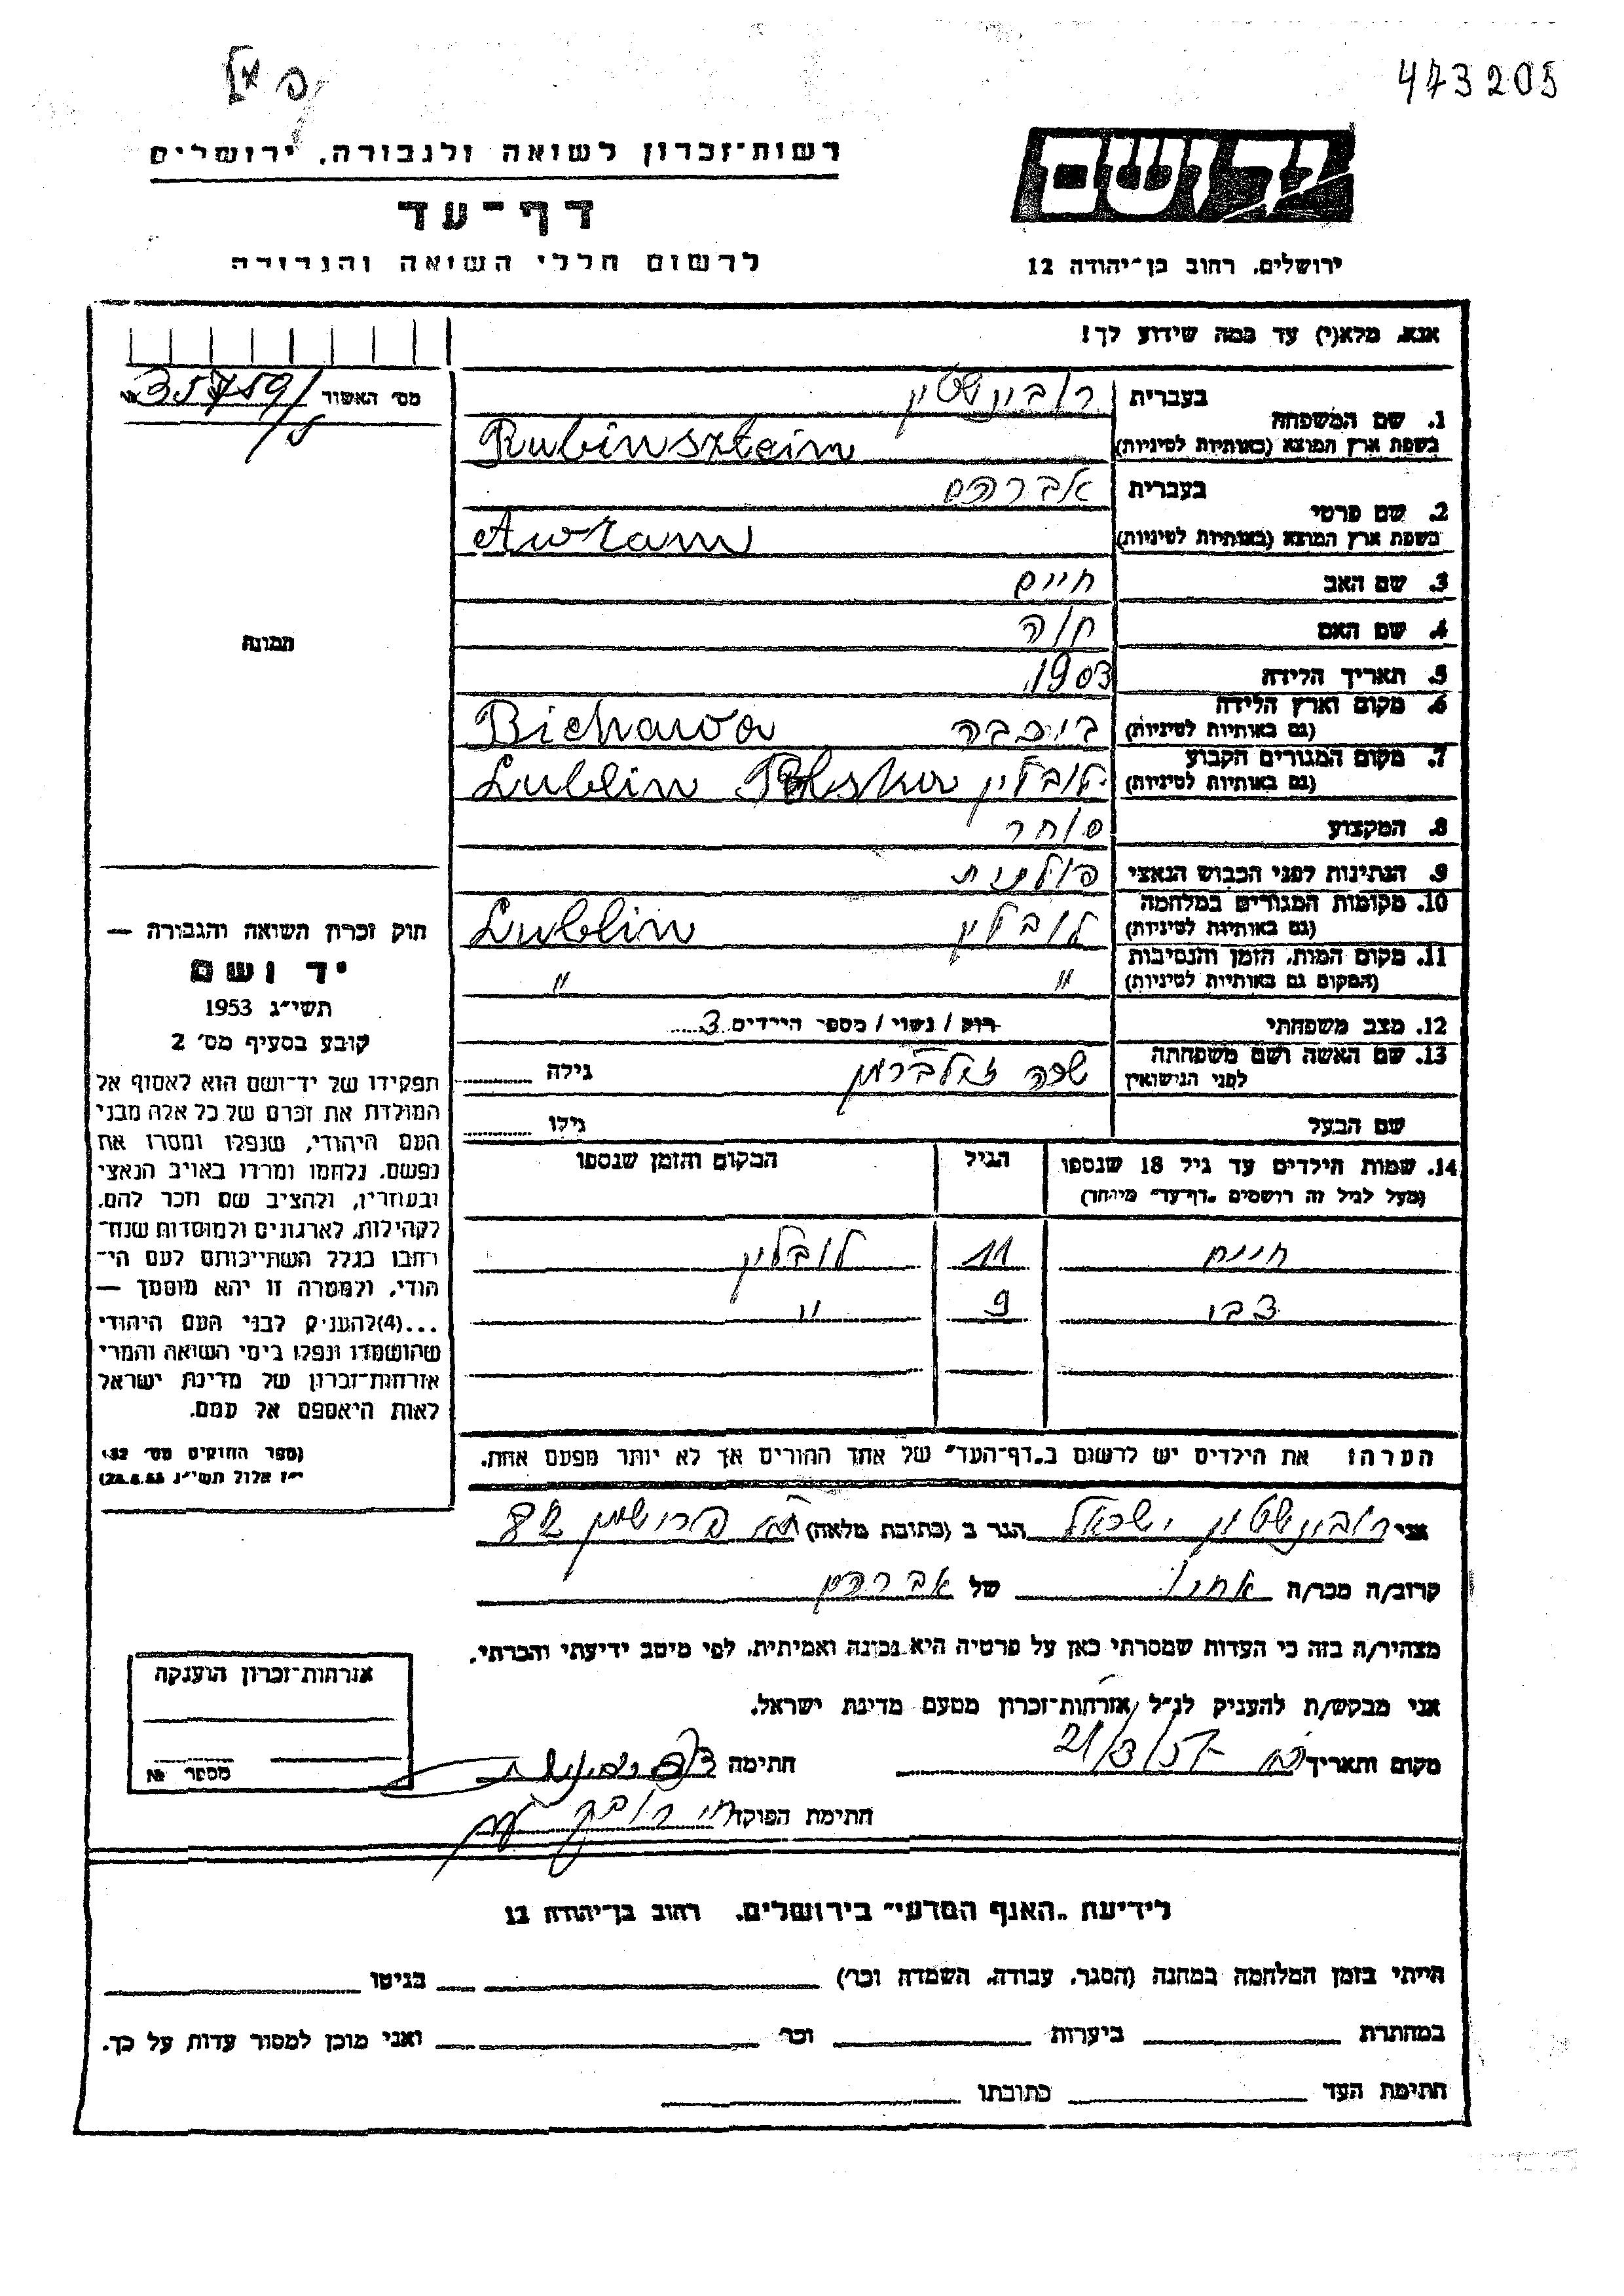 473205
רשות־זכרון לשואה ולגבורה, ירושלים
יד ושם
דף־עד
לרשום חללי השואה והגבורה
ירושלים, רחוב בן־יהודה 12
אנא, מלא(י) עד כמה שידוע לך!
מס׳ האשור 35759/
1. שם המשפחה
בעברית רובינשטין
בשפת ארץ המוצא (באותיות לטיניות) Rubinsztein
2. שם פרטי
בעברית אברהם
בשפת ארץ המוצא (באותיות לטיניות) Awram
3. שם האב חיים
4. שם האם חוה
5. תאריך הלידה 1903
6. מקום וארץ הלידה
(גם באותיות לטיניות) ביחבה Bichawa
7. מקום המגורים הקבוע
(גם באותיות לטיניות) לובלין Lublin Polska
8. המקצוע סוחר
9. הנתינות לפני הכבוש הנאצי פולנית
10. מקומות המגורים במלחמה
(גם באותיות לטיניות) לובלין Lublin
11. מקום המות, הזמן והנסיבות
(המקום גם באותיות לטיניות) " "
12. מצב משפחתי רוק / נשוי / מספר הילדים 3
13. שם האשה ושם משפחתה
לפני הנישואין שרה זילברמן גילה
שם הבעל גילו
14. שמות הילדים עד גיל 18 שנספו
(מעל לגיל זה רושמים „דף־עד״ מיוחד)
הגיל
המקום והזמן שנספו
חיים 11 לובלין
צבי 9 "
הערה: את הילדים יש לרשום ב„דף־העד״ של אחד ההורים אך לא יותר מפעם אחת.
תמונה
חוק זכרון השואה והגבורה —
יד ושם
תשי״ג 1953
קובע בסעיף מס׳ 2
תפקידו של יד־ושם הוא לאסוף אל
המולדת את זכרם של כל אלה מבני
העם היהודי, שנפלו ומסרו את
נפשם, נלחמו ומרדו באויב הנאצי
ובעוזריו, ולהציב שם וזכר להם,
לקהילות, לארגונים ולמוסדות שנח־
רבו בגלל השתייכותם לעם הי־
הודי, ולמטרה זו יהא מוסמך —
...(4)להעניק לבני העם היהודי
שהושמדו ונפלו בימי השואה והמרי
אזרחות־זכרון של מדינת ישראל
לאות היאספם אל עמם.
(ספר החוקים מס׳ 132
י״ז אלול תשי״ג 28.8.53)
אני רובינשטין ישראל הגר ב (כתובת מלאה)
קרוב/ה מכר/ה אחיו של אברהם
מצהיר/ה בזה כי העדות שמסרתי כאן על פרטיה היא נכונה ואמיתית, לפי מיטב ידיעתי והכרתי.
אני מבקש/ת להעניק לנ״ל אזרחות־זכרון מטעם מדינת ישראל.
מקום ותאריך 21/3/57 חתימה
חתימת הפוקד
אזרחות־זכרון הוענקה
מספר №
לידיעת „האגף המדעי״ בירושלים, רחוב בן־יהודה 12
הייתי בזמן המלחמה במחנה (הסגר, עבודה, השמדה וכר׳) בגיטו
במחתרת ביערות וכר׳ ואני מוכן למסור עדות על כך.
חתימת העד כתובתו